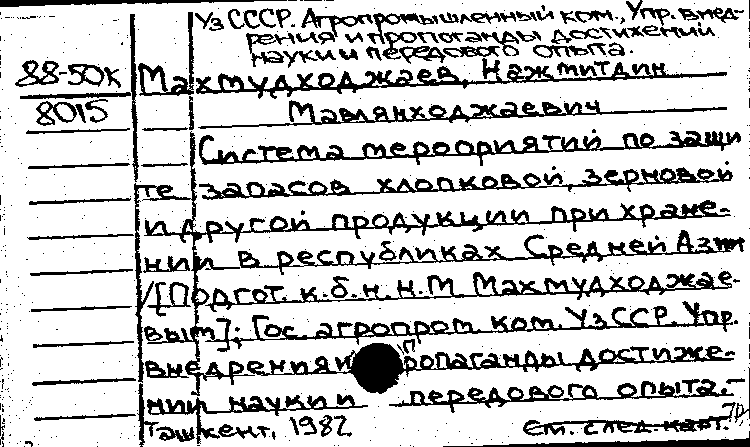 Уз ССР. Агропромышленный ком., Упр. внед-
рения и пропаганды достижений
науки и передового опыта.
88-50к Махмудходжаев, Нажмитдин
8015 Мавлянходжаевич
Система мероприятий по защи
те запасов хлопковой, зерновой
и другой продукции при хране-
нии в республиках Средней Азии
/[Подгот. к.б.н. Н.М. Махмудходжае-
вым]; Гос. агропром. ком. УзССР. Упр.
внедрения и пропаганды достиже-
ний науки и передового опыта.-
Ташкент, 1987.
См. след. карт.